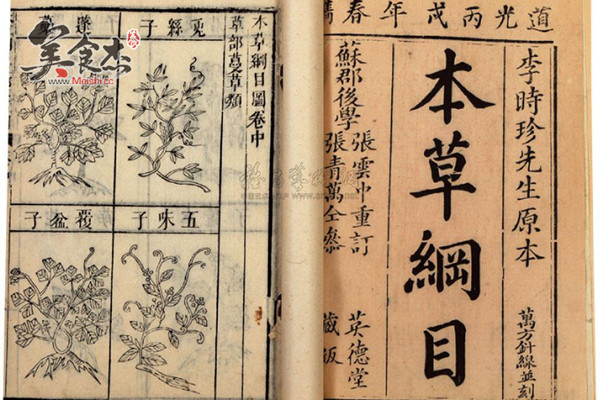 道光丙戌年春
李時珍先生原本
萬方針線並刻
本草綱目
蘇郡後學
張雲中重訂
張青萬仝參
英德堂藏版
本草綱目圖卷中
草部蔓草類
兎絲子
五味子
蓬
覆盆子
美食杰
www.Meishi.cc